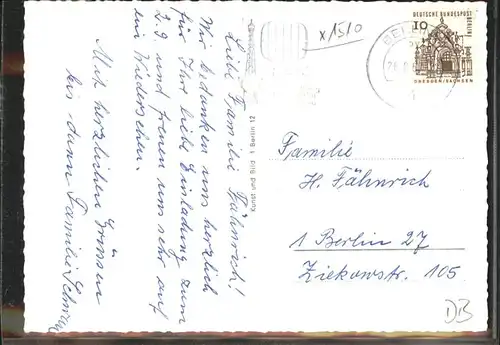 Liebe Familie Fähnrich!
Wir bedanken uns herzlich
für Ihr liebe Einladung zum
2.9 und freuen uns sehr auf
ein Wiedersehen.
Mit herzlichen Grüssen
bis dann Familie
Kunst und Bild 1 Berlin 12
x1510
DEUTSCHE BUNDESPOST BERLIN
10
DRESDEN/SACHSEN
Familie
H. Fähnrich
1 Berlin 27
Ziekowstr. 105
DB